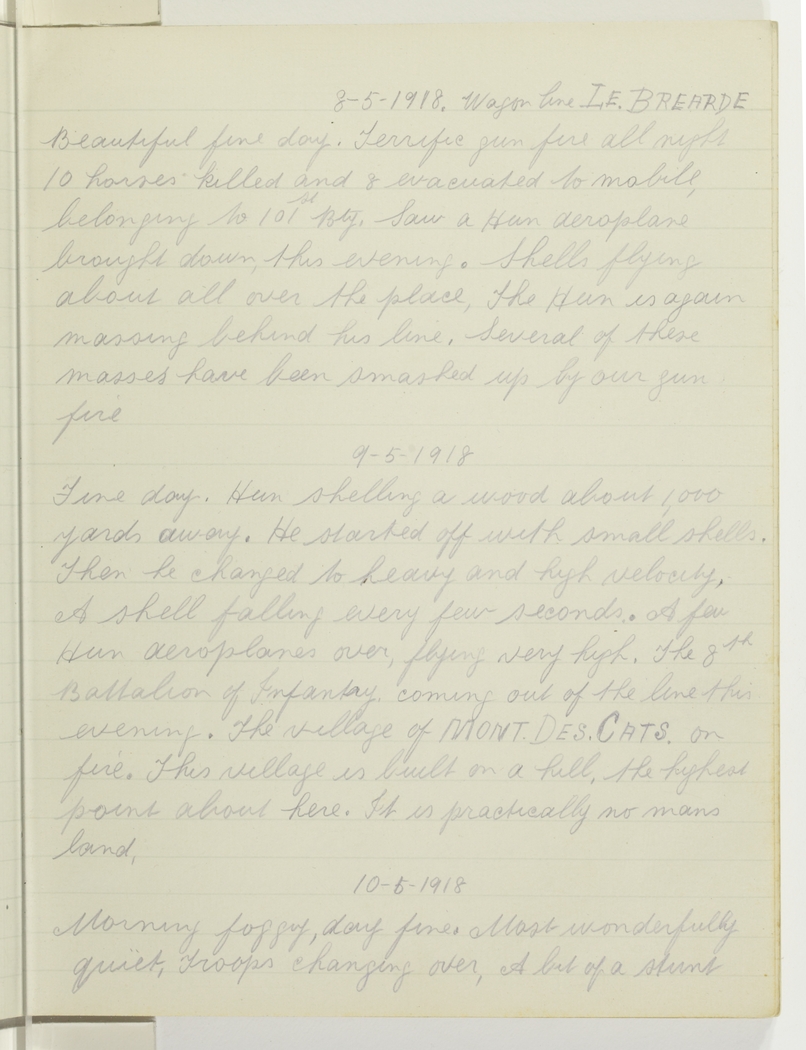 8-5-1918. Wagon line LE. BREARDE
Beautiful fine day. Terrific gun fire all night
10 horses killed and 8 evacuated to mobile,
belonging to 101st Bty. Saw a Hun aeroplane
brought down, this evening. Shells flying
about all over the place, The Hun is again
massing behind his line. Several of these
masses have been smashed up by our gun
fire
9-5-1918
Fine day. Hun shelling a wood about 1,000
yards away. He started off with small shells.
Then he changed to heavy and high velocity,
A shell falling every few seconds. A few
Hun aeroplanes over, flying very high. The 8th
Battalion of Infantay. coming out of the line this
evening. The village of MONT. DES. CATS. on
fire. This village is built on a hill, the highest
point about here. It is practically no mans
land,
10-5-1918
Morning foggy, day fine. Most wonderfully
quiet, Troops changing over, A bit of a stunt